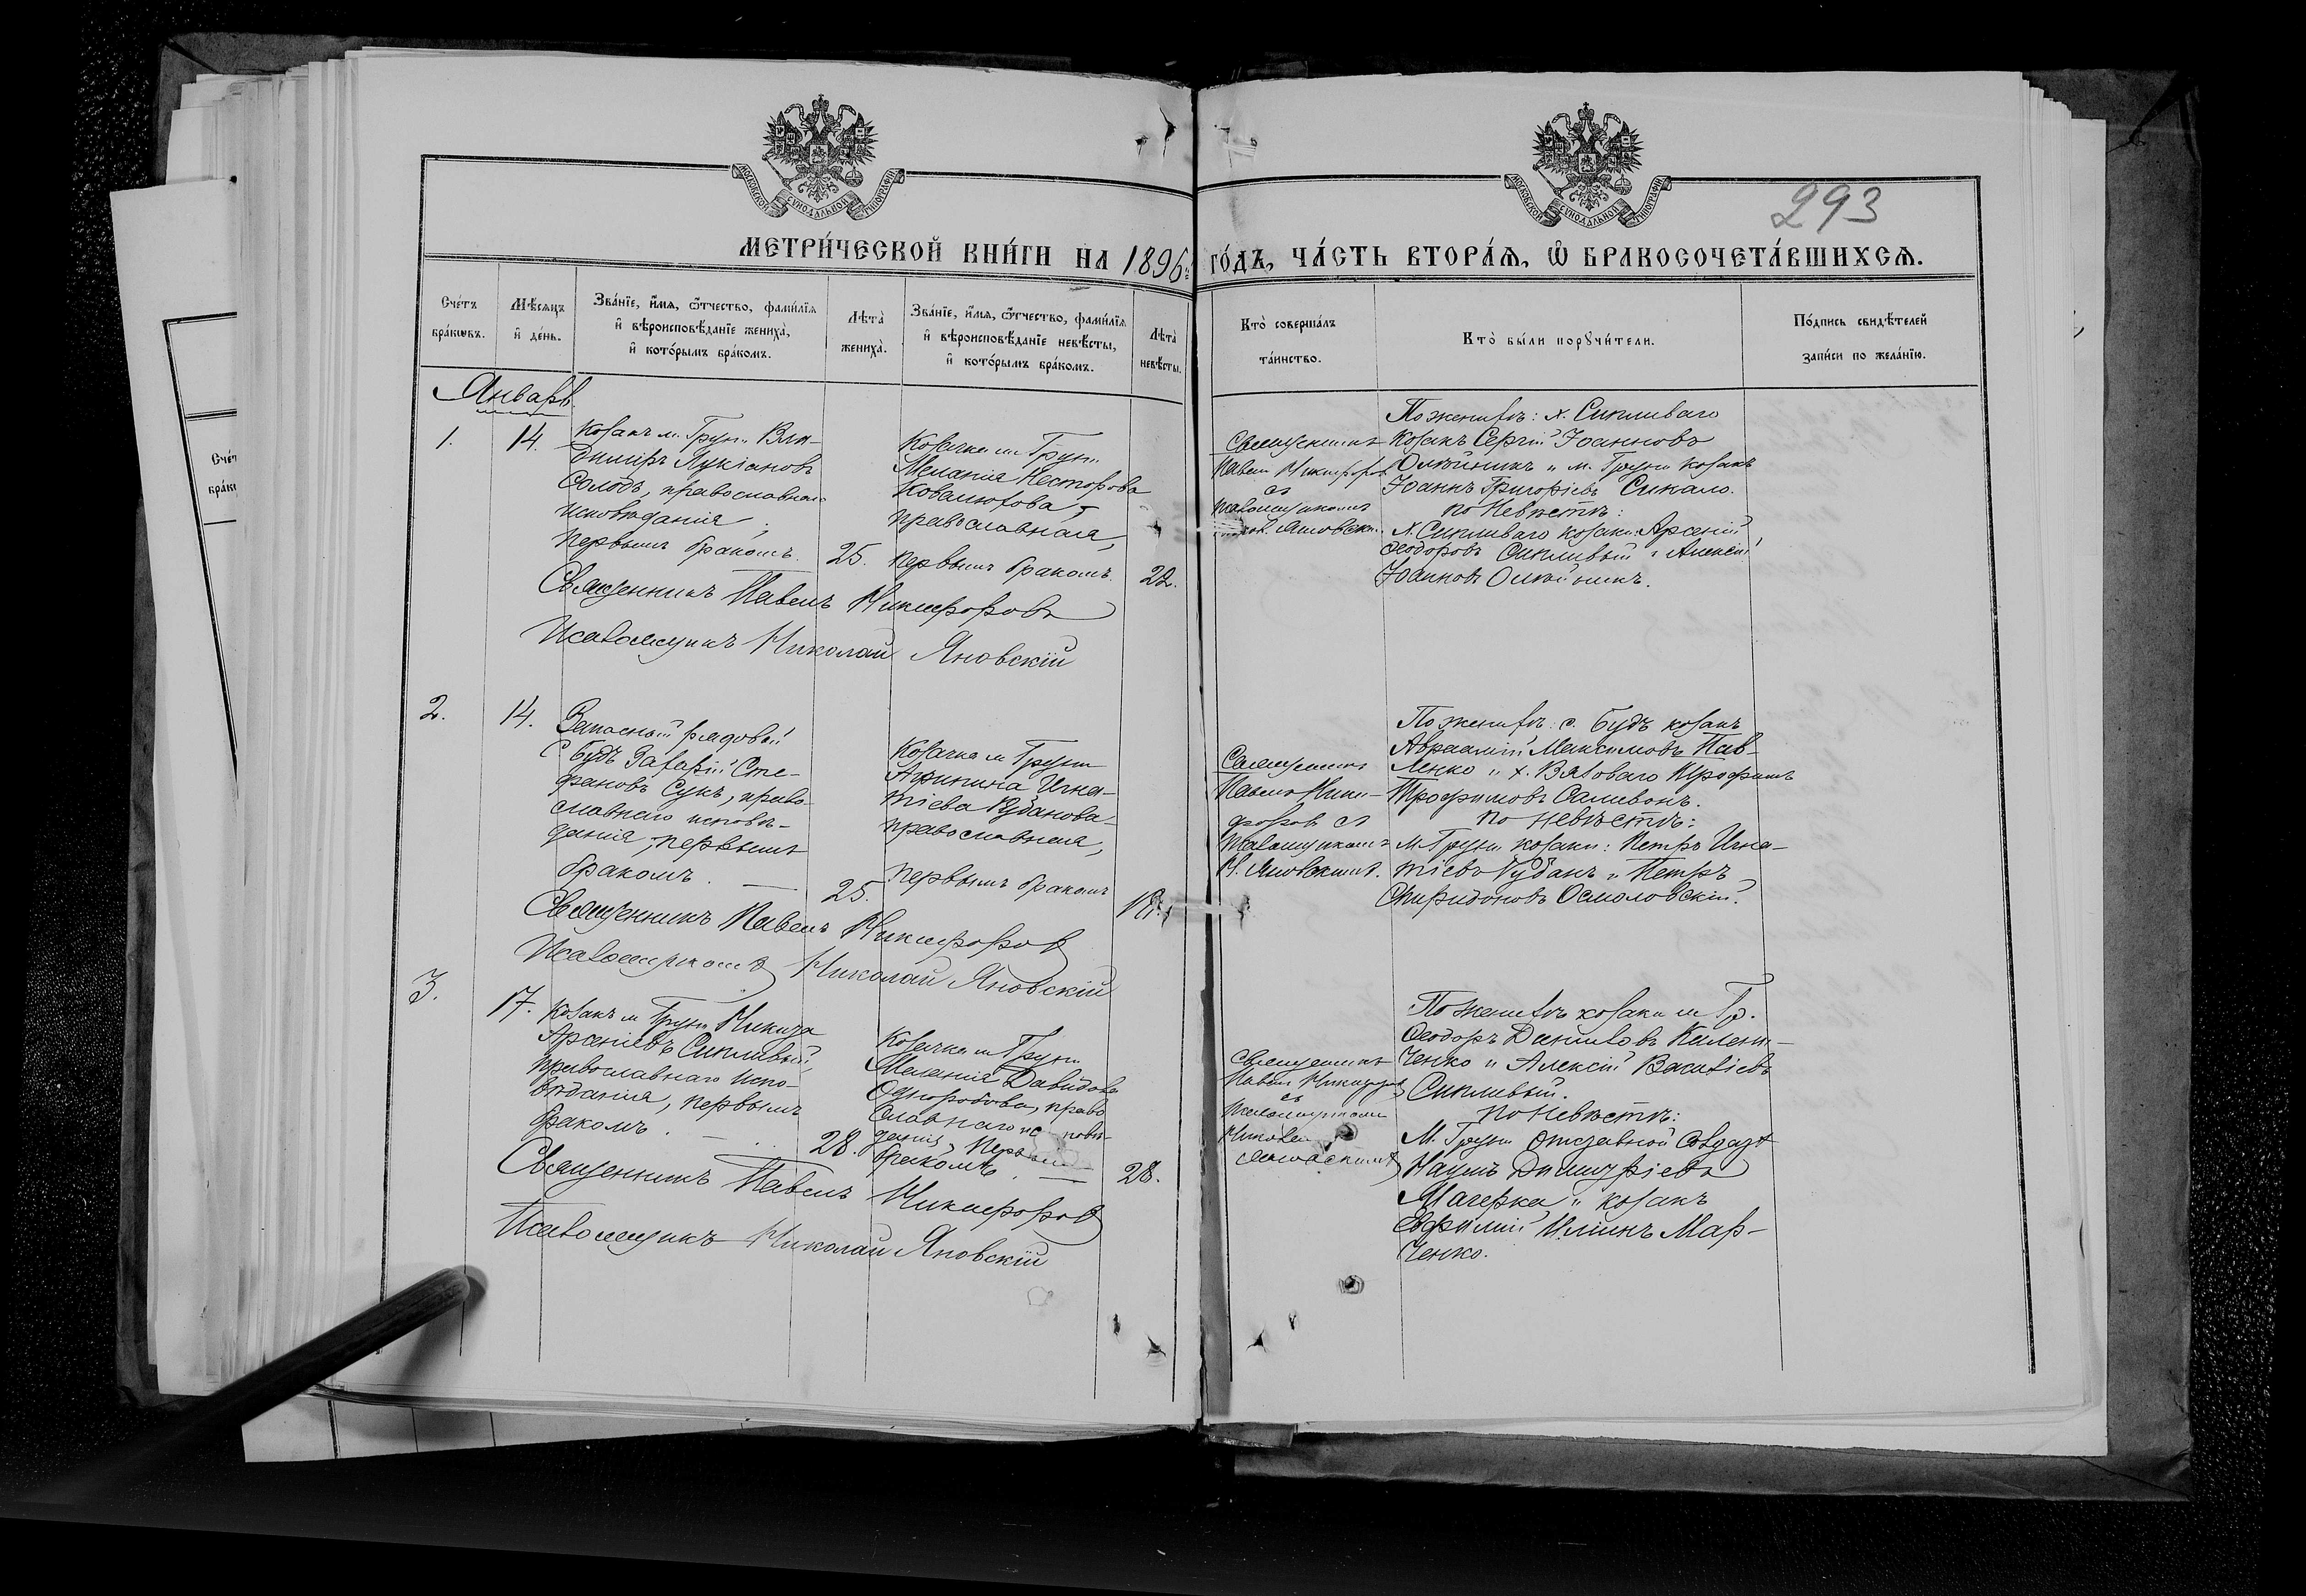 МОСКОВСКОЙ СѴНОДАЛЬНОЙ ТИПОГРАФІИ
МОСКОВСКОЙ СѴНОДАЛЬНОЙ ТИПОГРАФІИ
293
МЕТРИ́ЧЕСКОЙ КНИ́ГИ НА 1896 ГО́ДЪ, ЧА́СТЬ ВТОРА́Я, Ѡ БРАКОСОЧЕТА́ВШИХСЯ.
Сче́тъ бра́кѡвъ.
Мѣ́сяцъ и҆ де́нь.
Зва́нїе, и҆́мя, ѻ҆́тчество, фами́лїя
и҆ вѣроисповѣ́данїе жениха̀,
и҆ кото́рымъ бра́комъ.
Лѣта̀ жениха̀.
Зва́нїе, и҆́мя, ѻ҆́тчество, фами́лїя
и҆ вѣроисповѣ́данїе невѣ́сты,
и҆ кото́рымъ бра́комъ.
Лѣта̀ невѣ́сты.
Кто̀ соверша́лъ
та́инство.
Кто̀ бы́ли порꙋчи́тели.
По́дпись свидѣ́телей
за́писи по жела́нїю.
Январь
1.
14.
Козакъ м. Груни Вла-
димиръ Лукіановъ
Солодъ, православнаго
исповѣданія,
первымъ бракомъ.
25.
Козачка м. Груни
Меланія Несторова
Ковалютова,
православная,
первымъ бракомъ.
22.
Священникъ
Павелъ Никифоровъ
съ
псаломщикомъ
Яновскимъ
По женихѣ: х. Сипливаго
Козакъ Сергій Іоанновъ
Олѣйникъ и м. Груни козакъ
Іоаннъ Григоріевъ Сикало.
по Невѣстѣ:
х. Сипливаго козаки: Арсеній
Ѳеодоровъ Сипливый и Алексій
Іоанновъ Олѣйникъ.
Священникъ Павелъ Никифоровъ
Псаломщикъ Николай Яновскій
2.
14.
Запасный рядовый
с. Будъ Захарій Сте-
фановъ Сукъ, право-
славнаго исповѣ-
данія, первымъ
бракомъ.
25.
Козачка м. Груни
Агрипина Игна-
тіева Губанова
православная,
первымъ бракомъ
Священникъ
Павелъ Ники-
форовъ съ
псаломщикомъ
Н. Яновскимъ.
По женихѣ: с. Будъ козакъ
Авраамій Максимовъ Пав-
ленко и х. Вязоваго Трофимъ
Трофимовъ Саливонъ.
по Невѣстѣ:
М. Груни козаки: Петръ Игна-
тіевъ Губанъ и Петръ
Спиридоновъ Осмоловскій.
Священникъ Павелъ Никифоровъ
Псаломщикъ Николай Яновскій
3.
17.
Козакъ м. Груни Никита
Арсеніевъ Сипливый,
православнаго испо-
вѣданія, первымъ
бракомъ.
28.
Козачка м. Груни
Меланія Давидова
Однороbова, право
славнаго исповѣ-
данія, первымъ
бракомъ.
28.
Священникъ
Павелъ Никифоровъ
съ
псаломщикомъ
По женихѣ козаки м. Гр.
Ѳеодоръ Даниловъ Килени-
ченко и Алексій Василіевъ
Сипливый.
по Невѣстѣ:
М. Груни отставной солдатъ
Наумъ Димитріевъ
Мачерка и козакъ
Евфимій Иліинъ Мар-
ченко.
Священникъ Павелъ Никифоровъ
Псаломщикъ Николай Яновскій